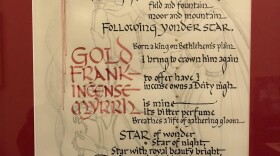 field and fountain,
moor and mountain,
Following yonder star.
Born a king on Bethlehem's plain
GOLD
I bring to crown him again
FRANK-
to offer have I
INCENSE
incense owns a Deity nigh
MYRRH
is mine
its bitter perfume
Breathes a life of gathering gloom
STAR of wonder
Star of night
Star with royal beauty bright